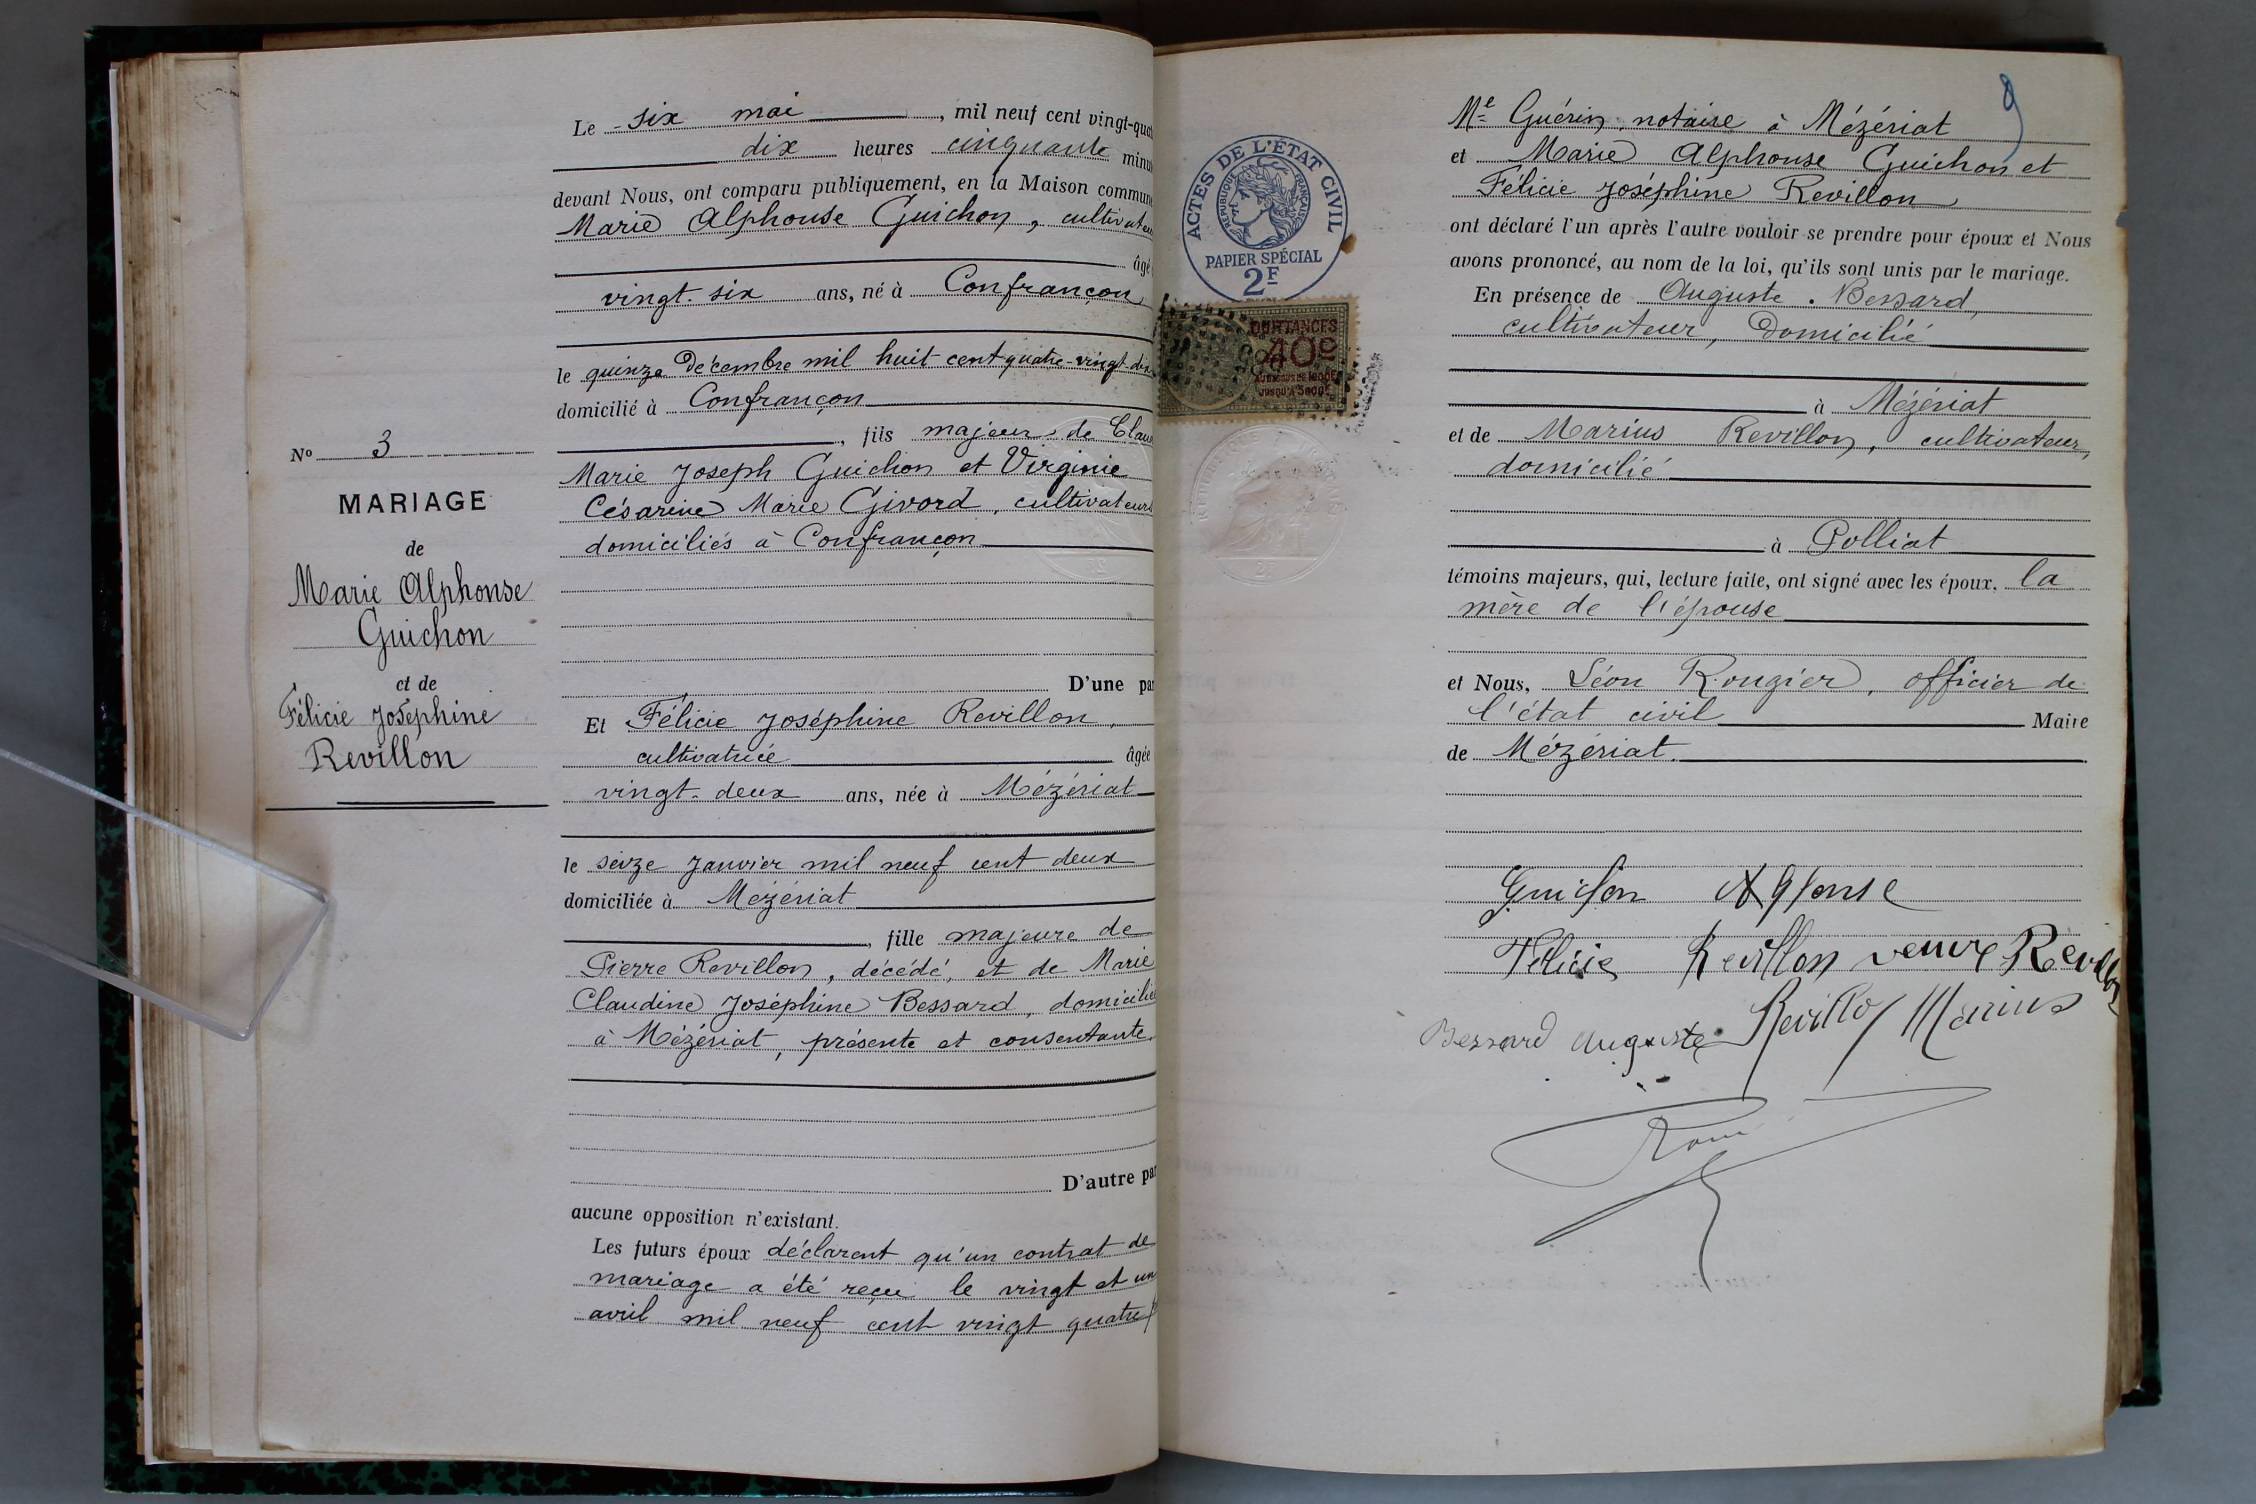 Le six mai, mil neuf cent vingt-quat
dix heures cinquante minu
devant Nous, ont comparu publiquement, en la Maison commune
Marie Alphonse Guichon, cultivateu
âgé
vingt-six ans, né à Confrançon
le quinze Décembre mil huit cent quatre-vingt-dix
domicilié à Confrançon
, fils majeur de Clau
Marie Joseph Guichon et Virginie
Césarine Marie Givord, cultivateurs
domiciliés à Confrançon
D'une pa
Nº 3
MARIAGE
de
Marie Alphonse
Guichon
et de
Félicie Joséphine
Revillon
Et Félicie Joséphine Revillon,
cultivatrice âgée
vingt-deux ans, née à Mézériat
le seize Janvier mil neuf cent deux
domiciliée à Mézériat
, fille majeure de
Pierre Revillon, décédé, et de Marie
Claudine Joséphine Bessard, domicilié
à Mézériat, présente et consentante.
D'autre pa
aucune opposition n'existant.
Les futurs époux déclarent qu'un contrat de
mariage a été reçu le vingt et un
avril mil neuf cent vingt quatre
9
ACTES DE L'ÉTAT CIVIL
RÉPUBLIQUE FRANÇAISE
PAPIER SPÉCIAL
2F
QUITTANCES
40c
AU DESSUS DE 1000F
JUSQU'A 3000F
Me Guérin, notaire à Mézériat
et Marie Alphonse Guichon et
Félicie Joséphine Revillon
ont déclaré l'un après l'autre vouloir se prendre pour époux et Nous
avons prononcé, au nom de la loi, qu'ils sont unis par le mariage.
En présence de Auguste Bessard,
cultivateur, Domicilié
à Mézériat
et de Marius Revillon, cultivateur,
domicilié
à Polliat
témoins majeurs, qui, lecture faite, ont signé avec les époux, la
mère de l'épouse
et Nous, Léon Rougier, officier de
l'état civil Maire
de Mézériat.
Guichon Alfonse
Félicie Revillon veuve Revillon
Bessard Auguste Revillon Marius